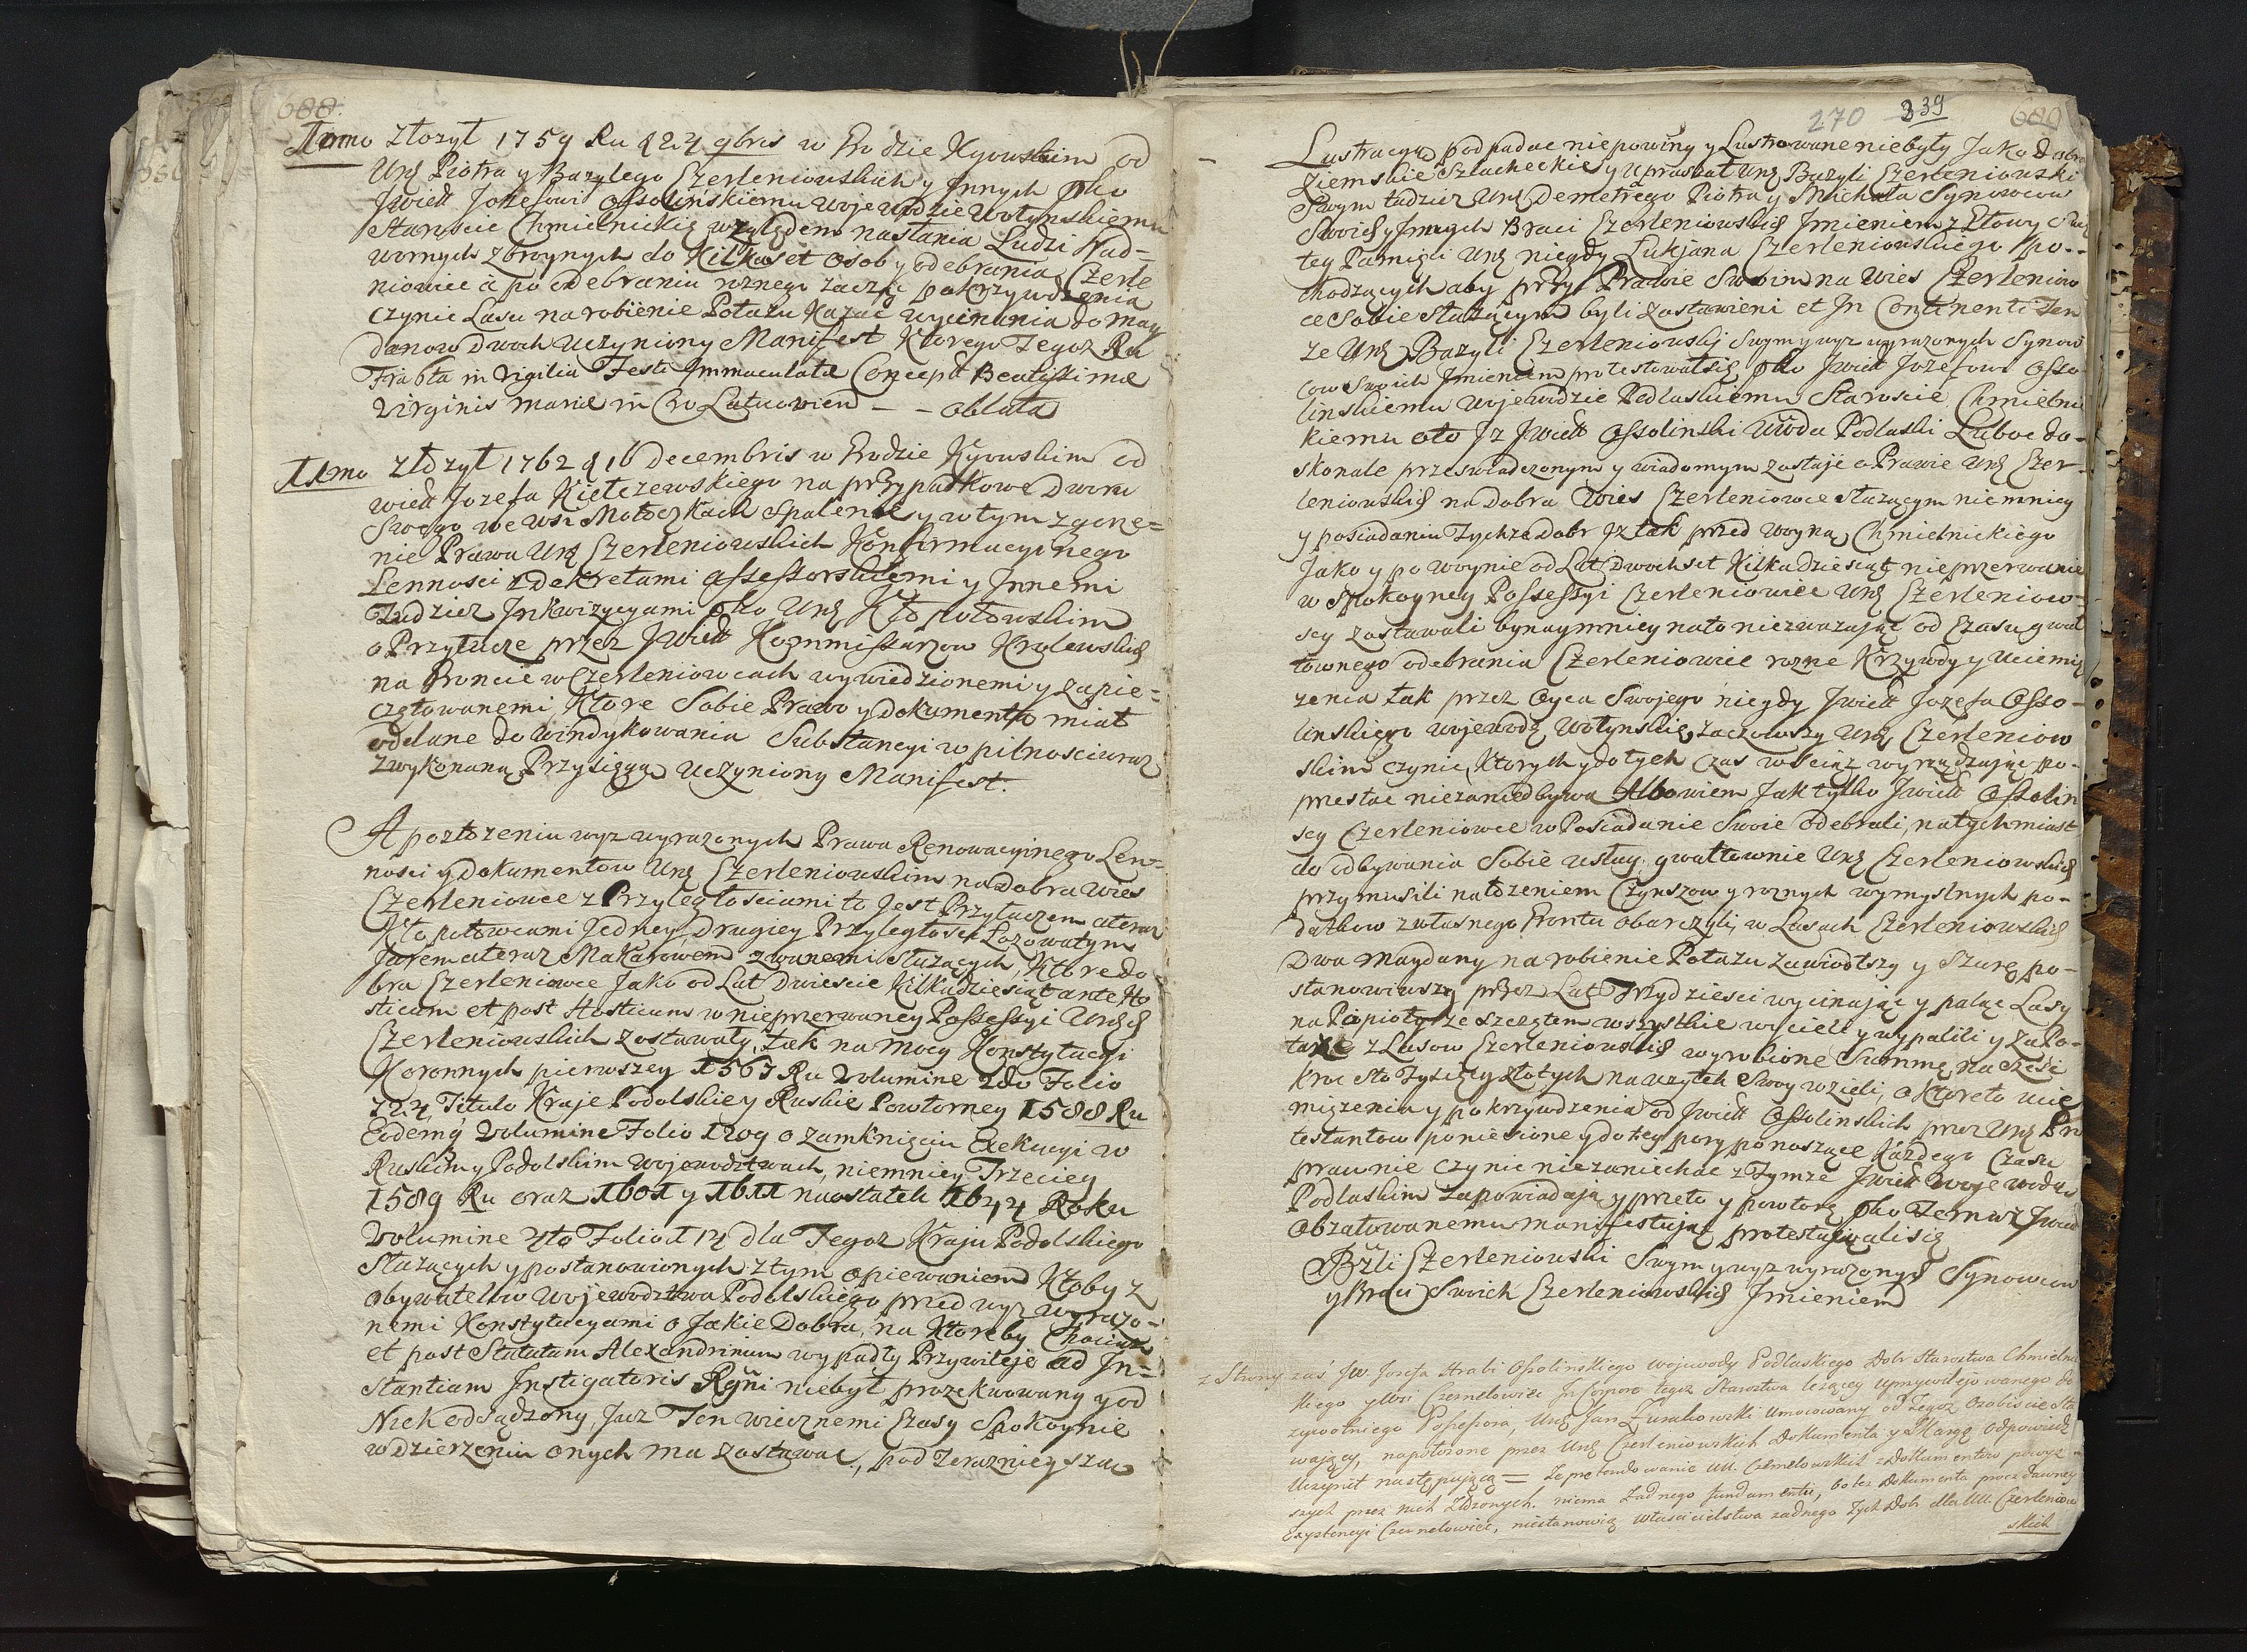 688.
10mo złożył 1759 Ru d 24 9bris w Grodzie Kijowskim od
Urg Piotra y Bazylego Czerleniowskich y Innych pko
Jwielt Jozefowi Ossolińskiemu Wojewodzie Wołynskiemu
Staroscie Chmielnickię względem nasłania Ludzi Nad=
wornych zbroynych do Kilkuset osob y odebrania Czerle
niowiec a po odebraniu roznego zacząć pokrzywdzenia
czynic Lasu na robienie Potażu Kazać wycinania do May
danow Dwoch uczyniony Manifest Ktorego Tegoz Ru
Fria 6ta in Vigilia Festi Immaculatæ Concept Beatissimæ
Virginis Mariæ in Co Latyczovien - - oblata
11mo złożył 1762 d 16 Decembris w Grodzie Kijowskim od
wielt Jozefa Kiełczewskiego na przypadkowe Dworu
Swego we wsi Mołoczkach Spalenie y w tym zgine=
nie Prawa Urg Czerleniowskich Konfirmacyinego
Lennosci z Dekretami assessorskiemi y Innemi
Tudziez Inkwizycyami pko Urg Kłopotowskim
o Przyłucze przez Jwielt Kommissarzow Krolewskich
na Gruncie w Czerleniowcach wywiedzionemi y zapie=
czętowanemi, Ktore Sobie Prawo y dokumenta miał
oddane do windykowania Substancyi w pilnosci wraz
z wykonaną Przysięgą uczyniony Manifest.
A po złożeniu wyz wyrazonych Prawa Renowacyinego Len=
nosci y dokumentow Urg Czerleniowskim na Dobra Wies
Czerleniowce z Przyległosciami to Jest Przyłuczem a teraz
Kłopotowcami Jedney, Drugiey Przyległosci Łozowatym
Jarem a teraz Makarowem zwanemi służących, Ktore do
bra Czerleniowce Jako od Lat Dwiescie Kilkadziesiąt ante Ho
sticum et post Hosticum w nieprzerwaney Possessyi Urgch
Czerleniowskich zostawały, tak na mocy Konstytucyi
Koronnych pierwszey 1567 Ru Volumine 2do Folio
724 Titulo Kraje Podolskie y Ruskie Powtorney 1588 Ru
Eodemq Volumine Folio 1209 o zamknięciu Exekucyi w
Ruskim y Podolskim Wojewodztwach, niemniey Trzeciey
1589 Ru oraz 1601 y 1611 na ostatek 1644 Roku
Volumine 4to Folio 114 dla Tegoz Kraju Podolskiego
Służących y postanowionych z tym opiewaniem Ktoby z
Obywatelow Wojewodztwa Podolskiego przed wyz wyrazo=
nemi Konstytucyami o Jakie Dobra, na Ktoreby Chociaz
et post Statutum Alexandrinum wypadły Przywileje ad In=
stantiam Instigatoris Rgni niebył prozekwowany y od
Nich odsądzony, Juz Ten wiecznemi Czasy Spokoynie
w dzierzeniu onych ma zostawac, pod Teraznieyszą
270 339 689
Lustracyą podpadac niepowinny y Lustrowane niebyły Jako dobra
Ziemskie Szlacheckie y upraszał Urg Bazyli Czerleniowski
Swym tudziez Urg Demetrego Piotra y Michała Synowcow
Swoich y Innych Braci Czerleniowskich Imieniem z Głowy Swię
tey Pamięci Urg niegdy Lukjana Czerleniowskiego po--
chodzących aby przy Prawie Swoim na Wies Czerleniow
ce Sobie służącym byli zostawieni et In Continenti Ten
ze Urg Bazyli Czerleniowski Swym y wyz wyrazonych Synow
cow Swoich Imieniem protestował się pko Jwielt Jozefowi Osso-
linskiemu Wojewodzie Podlaskiemu Staroscie Chmielnic
kiemu oto Iz Jwielt Ossolinski Wwda Podlaski Lubo do-
skonale przeswiadczonym y wiadomym zostaje o Prawie Urg Czer-
leniowskich na Dobra Wies Czerleniowce służącym niemniey
y posiadaniu Tychze Dobr Iz tak przed woyną Chmielnickiego
Jako y po woynie od Lat Dwochset Kilkadziesiąt nieprzerwanie
w Spokoyney Possessyi Czerleniowiec Urg Czerleniow-
scy zostawali bynaymniey na to niezwazając od Czasu gwał
townego odebrania Czerleniowiec rozne Krzywdy y uciemię
zenia tak przez Oyca Swojego niegdy Jwielt Jozefa Osso-
linskiego Wojewodę Wołynskię, zacząwszy Urg Czerleniow
skim czynic, Ktorych y do tych Czas wsciąz wyrządzając po-
przestac niezaniedbywa Albowiem Jak tylko Jwielt Ossolin
scy Czerleniowce w Posiadanie Swoie odebrali, natychmiast
do odbywania Sobie usług gwałtownie Urg Czerleniowskich
przymusili nałozeniem Czynszow y roznych wymyslnych po-
datkow z własnego Gruntu obarczyli, w Lasach Czerleniowskich
Dwa Maydany na robienie Potażu zawiodłszy y Szurę po-
stanowiwszy przez Lat Trzydziesci wycinając y paląc Lasy
na Popioły ze szczętem wszystkie wycieli y wypalili y za Po-
taże z Lasow Czerleniowskich wyrobione Summę na Szesc
kroc sto Tysięcy złotych na uzytek Swoy wzieli, o Ktoreto ucie
mięzenia y pokrzywdzenia od Jwielt Ossolinskich przez Urg Pro
testantow poniesione y do tey pory ponoszące Kazdego Czasu
prawnie czynic niezaniechac z Tymze Jwielt Wojewodą
Podlaskim zapowiadają y przeto y powtore pko Temuz Jwiel
Obzałowanemu manifestując protestowali się
Bzli Czerleniowski Swym y wyz wyrazonych Synowcow
y Braci Swoich Czerleniowskich Imieniem
z Strony zaś Jw. Jozefa Hrabi Ossolinskiego Wojewody Podlaskiego Dobr Starostwa Chmielnic
kiego y Wsi Czerniełowiec In Corpore tegoż Starostwa leżącey uprzywilejowanego do
zywotniego Possessora, Urg Jan Zurakowski Umocowany od Tegoż Osobiscie Sta
wający, na położone przez Urg Czerleniowskich Dokumenta y Skargę odpowiedź
Uczynił następującą = Ze pretendowanie UU. Czerniełowskich z Dokumentow powyz
szych przez nich złożonych. niema Żadnego fundamentu, bo tez Dokumenta procz dawney
Exystencyi Czernielowiec, niestanowią własicielstwa zadnego Tych Dobr dla UU. Czerleniow
skich